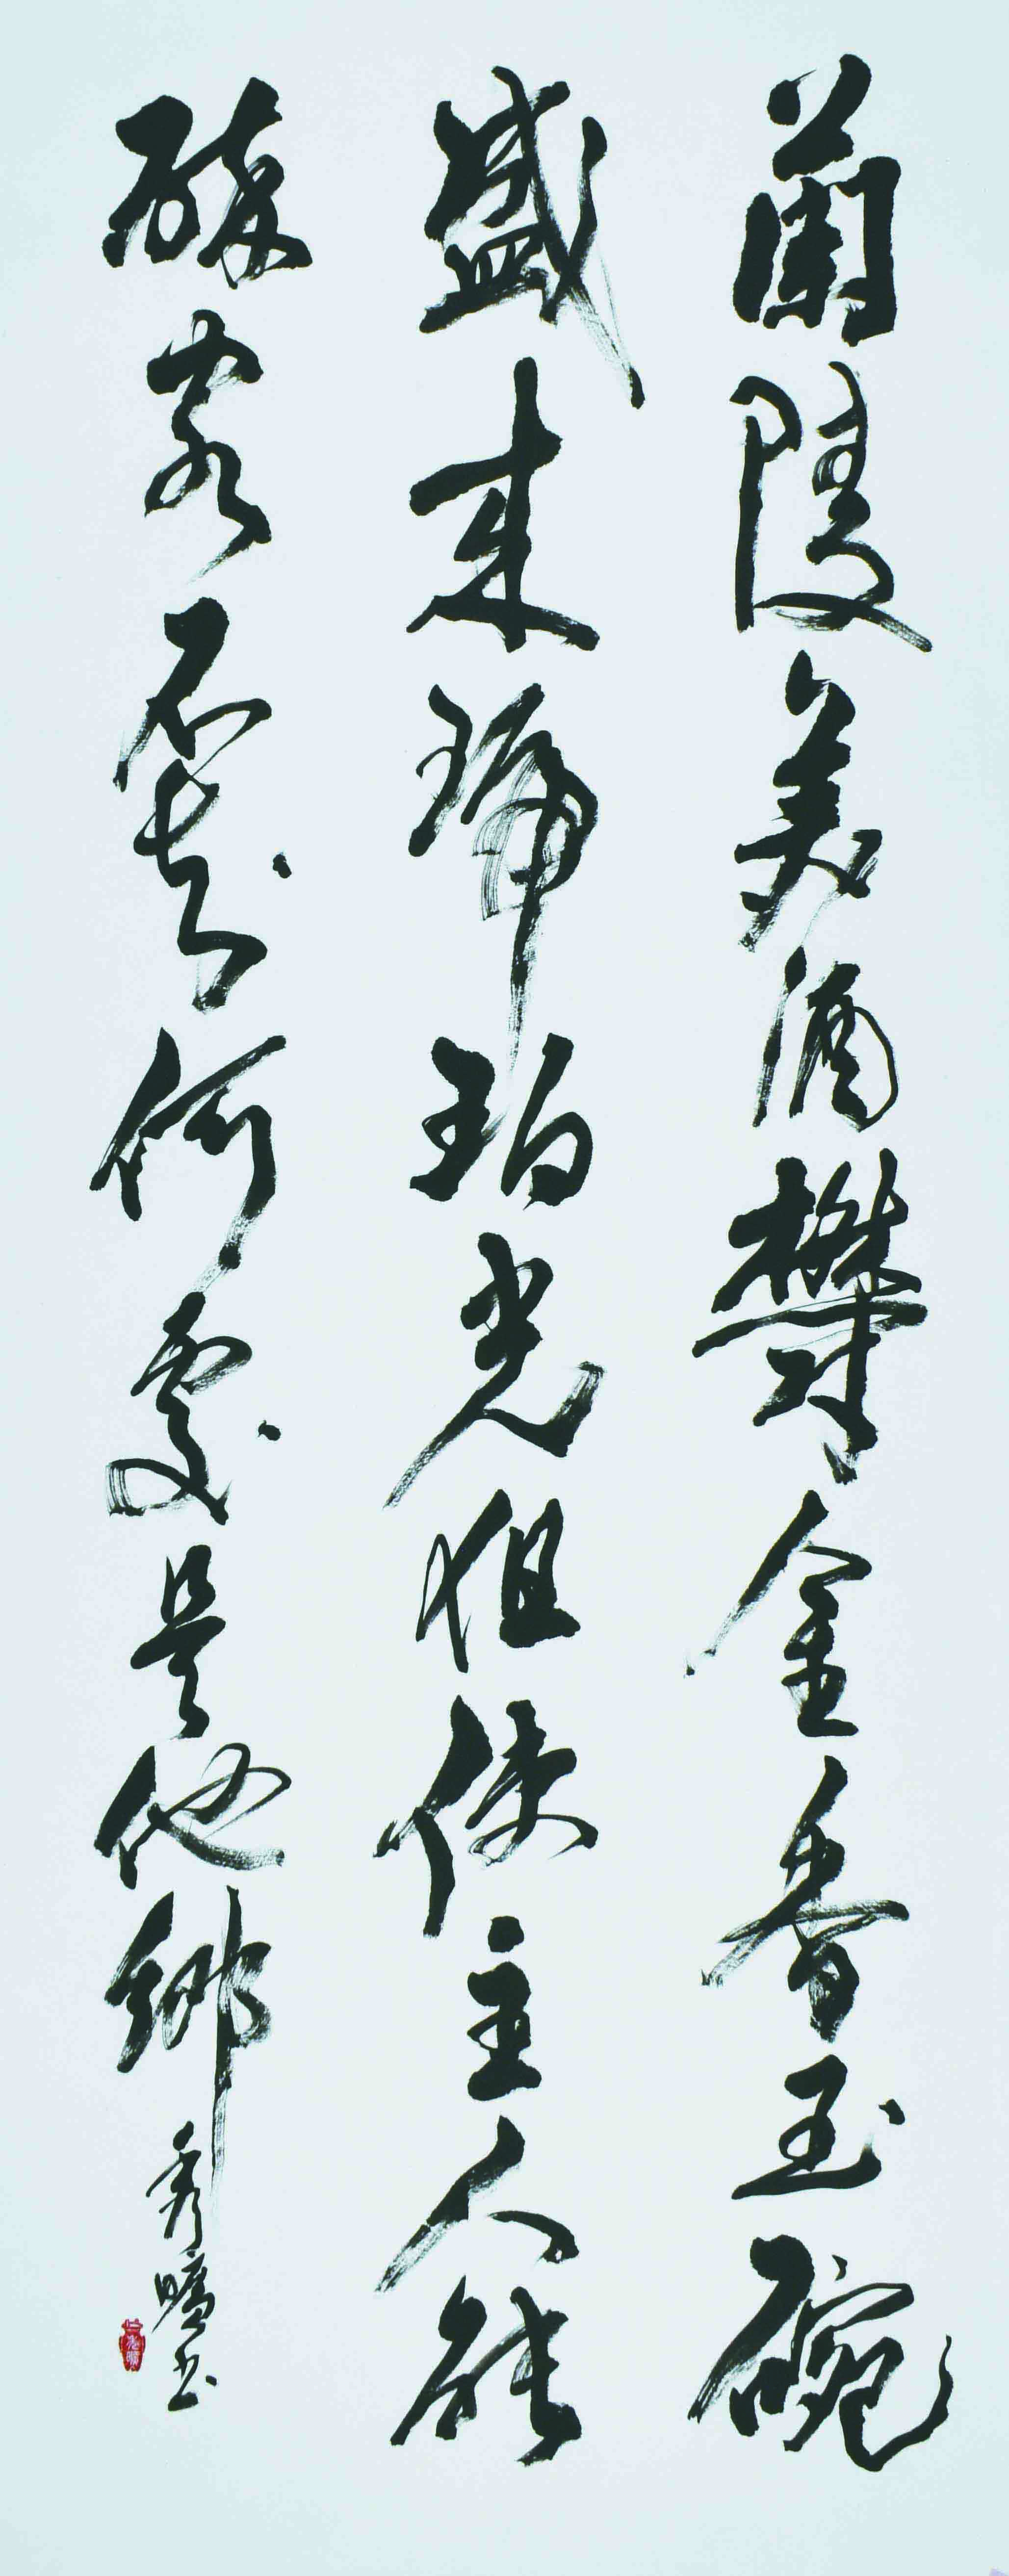 蘭陵美酒欝金香玉碗
盛来琥珀光但使主人能
醉客不知何處是他鄉
秀曠书